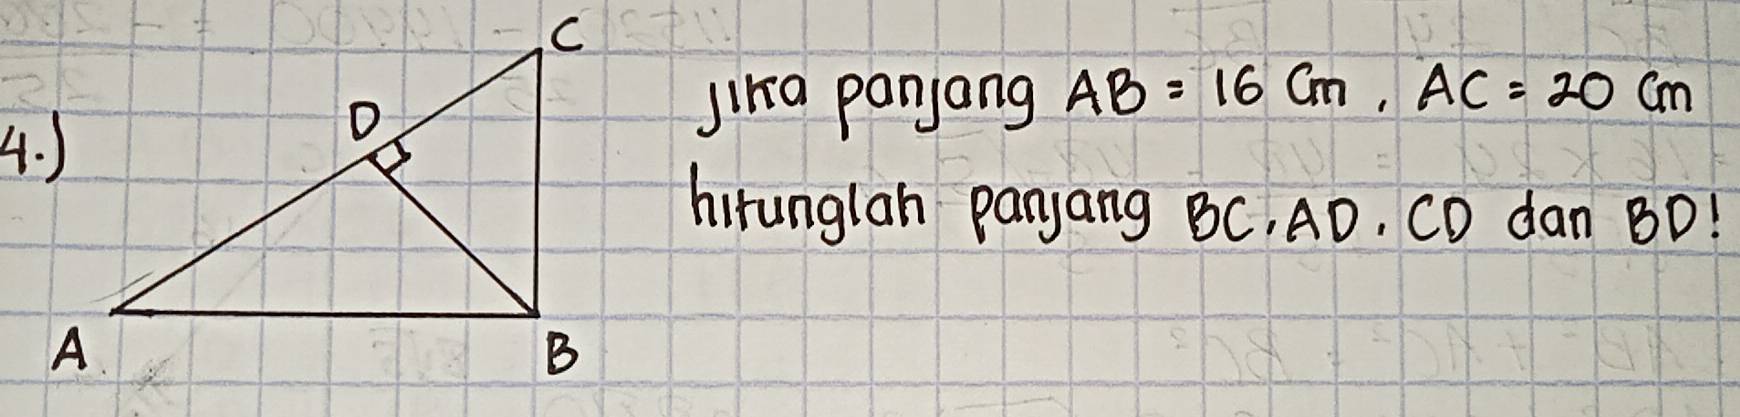 4.)
C
D
A
B
Jika panjang AB = 16 Cm, AC = 20 Cm
hitunglah panjang BC, AD, CD dan BD!